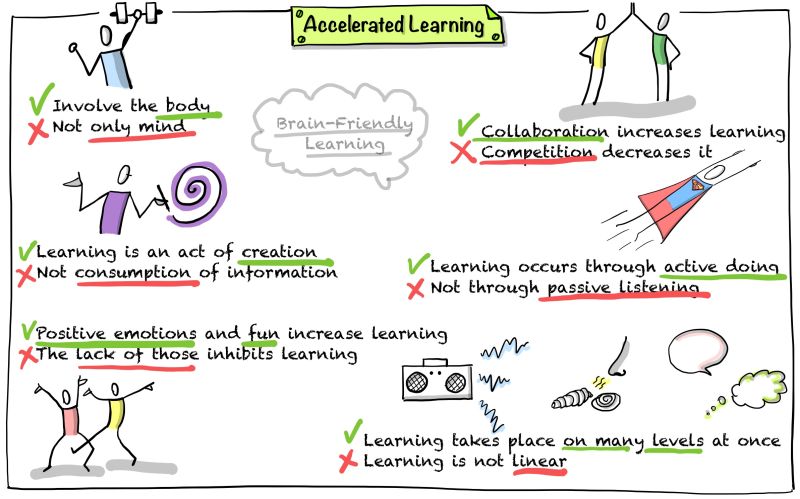 Accelerated Learning
Involve the body
Not only mind
Brain-Friendly
Learning
Collaboration increases learning
Competition decreases it
Learning is an act of creation
Not consumption of information
Learning occurs through active doing
Not through passive listening
Positive emotions and fun increase learning
The lack of those inhibits learning
Learning takes place on many levels at once
Learning is not linear